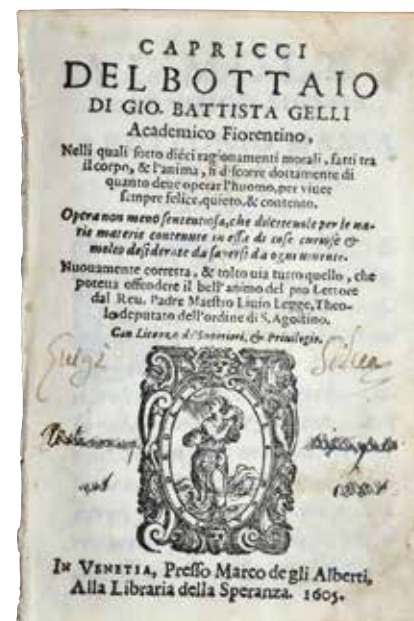 CAPRICCI
DEL BOTTAIO
DI GIO. BATTISTA GELLI
Academico Fiorentino,
Nelli quali sotto dieci ragionamenti morali, fatti tra
il corpo, & l'anima, si discorre dottamente di
quanto deue operar l'huomo, per viuer
sempre felice, quieto, & contento.
Opera non meno sententiosa, che diletteuole per le va-
rie materie contenute in esse di cose curiose &
molto desiderate da sapersi da ogni viuente.
Nuouamente corretta, & tolto uia tutto quello, che
poteua offendere il bell'animo del pio Lettore
dal Reu. Padre Maestro Liuio Legge, Theo-
logo deputato dell'ordine di S. Agostino.
Con Licenza de' Superiori, & Priuilegio.
Luigi
IN VENETIA, Presso Marco de gli Alberti,
Alla Libraria della Speranza. 1605.